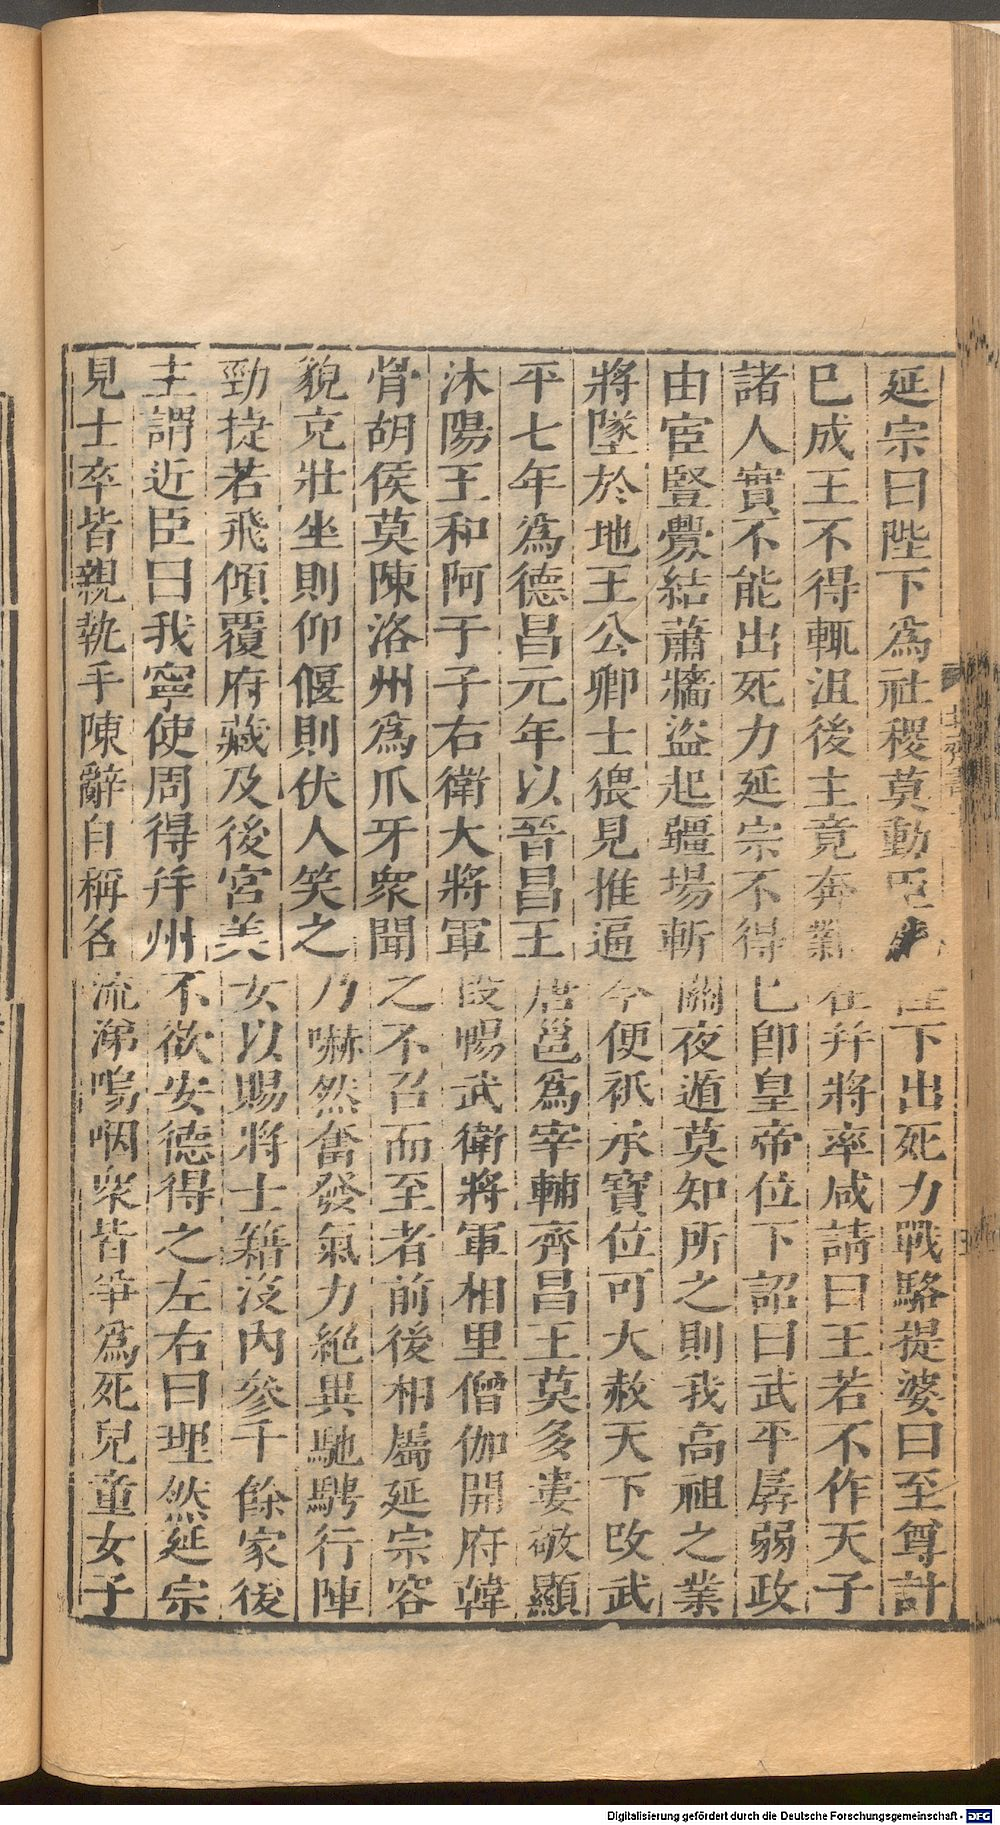 延宗曰陛下爲社稷莫動臣陛下出死力戰駱提婆曰至尊計
已成王不得輒沮後主竟奔鄴在并將率咸請曰王若不作天子
諸人實不能出死力延宗不得已卽皇帝位下詔曰武平孱弱政
由宦豎釁結蕭牆盜起疆場斬關夜遁莫知所之則我高祖之業
將墜於地王公卿士猥見推逼今便祇承寶位可大赦天下改武
平七年爲德昌元年以晉昌王唐邕爲宰輔齊昌王莫多婁敬顯
沐陽王和阿于子右衛大將軍段暢武衛將軍相里僧伽開府韓
骨胡侯莫陳洛州爲爪牙衆聞之不召而至者前後相屬延宗容
貌充壯坐則仰偃則伏人笑之乃嚇然奮發氣力絕異馳騁行陣
勁捷若飛傾覆府藏及後宮美女以賜將士籍沒內參千餘家後
主謂近臣曰我寧使周得并州不欲安德得之左右曰理然延宗
見士卒皆親執手陳辭自稱名流涕嗚咽衆皆爭爲死兒童女子
Digitalisierung gefördert durch die Deutsche Forschungsgemeinschaft - DFG